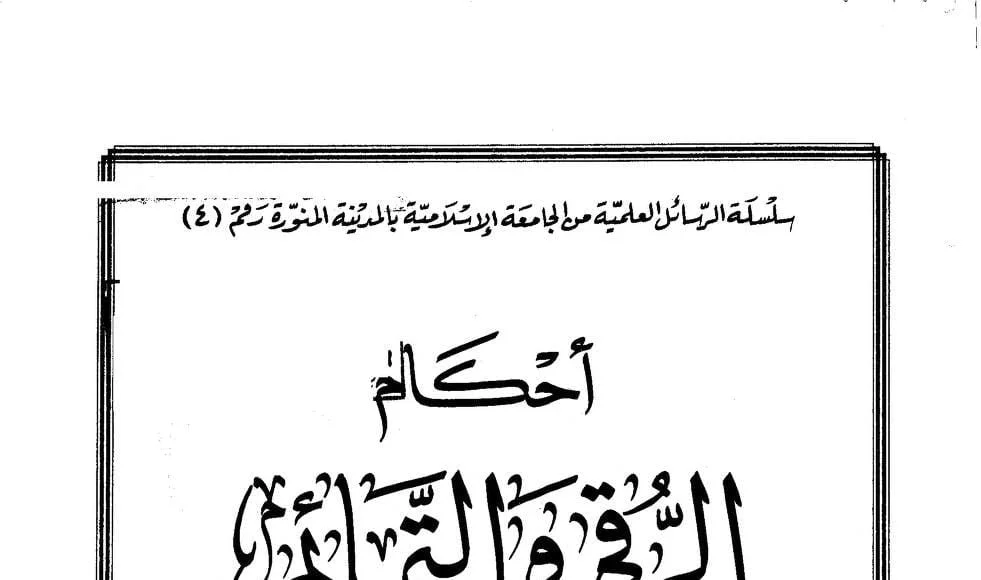 سلسلة الرسائل العلمية من الجامعة الإسلامية بالمدينة المنورة رقم (٤)
أحكام
الرقى والتمائم